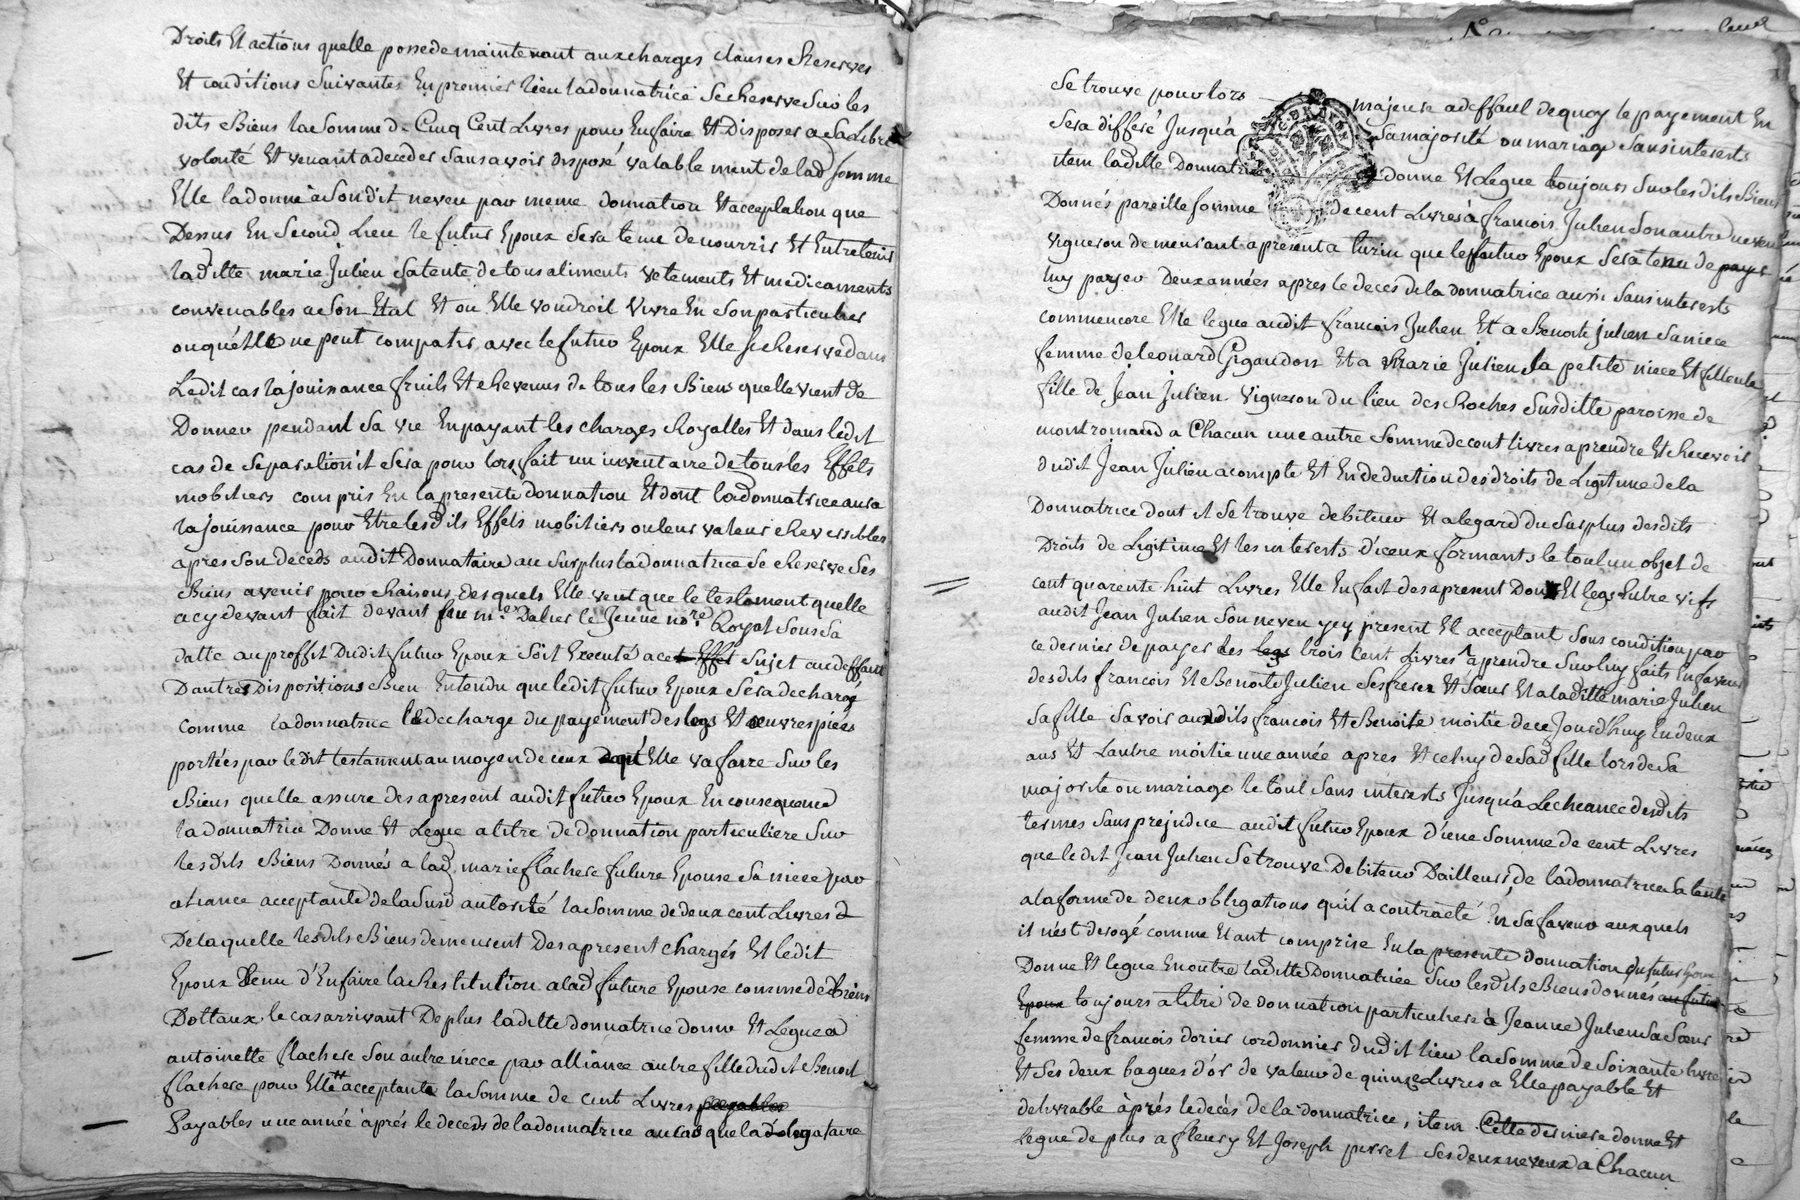 Droits Et actions quelle possede maintenant aux charges clauses Reserves
Et conditions Suivantes En premier lieu ladonnatrice Se Reserve Sur les
dits Biens la Somme de Cinq Cent Livres pour En faire Et Disposer a Sa Libre
volonté Et venant a deceder Sans avoir disposé valablement de lad somme
Elle la donne à Son dit neveu par meme donnation Et acceptation que
Dessus En Second Lieu le futur Epoux Sera tenu de nourrir Et Entretenir
laditte marie Julien Sa tente de tous aliments vetements Et medicaments
convenables a Son Etat Et ou Elle voudroit Vivre En Son particulier
ou quéElle ne peut compatir avec le futur Epoux Elle se Reserve dans
Ledit cas la jouissance fruits Et Revenus de tous les Biens quelle vient de
Donner pendant Sa vie En payant les charges Royalles Et dans ledit
cas de Separation it Sera pour lors fait un inventaire de tous les Effets
mobiliers compris En la presente donnation Et dont la donnatrice aura
la jouissance pour Etre lesdits Effets mobiliers ou leur valeur Reversibles
apres Son deceds audit Donnataire au Surplus la donnatrice Se Reserve Ses
Biens a venir pour Raisons desquels Elle veut que le testament quelle
a cy devant fait devant feu me Dalier le Jeune nore Royal Sous Sa
datte au proffit Dudit futur Epoux Soit Executé a cet Effet Sujet au deffaut
D'autres Dispositions Bien Entendu que ledit futur Epoux Sera decharge
comme la donnatrice le decharge du payement des legs Et œuvres piées
portées par le dit testament au moyen de ceux Elle va faire Sur les
Biens quelle assure des a present audit futur Epoux En consequence
la donnatrice Donne Et Legue a titre de donnation particuliere Sur
les dits Biens Donnés a lad marie flachere future Epouse Sa niece par
aliance acceptante de la Susd autorité la Somme de deux cent Livres
De laquelle lesdits Biens demeurent Des a present chargés Et ledit
Epoux tenu d'En faire la Restitution a lad future Epouse comme de Biens
Dottaux le cas arrivant De plus laditte donnatrice donne Et Legue a
antoinette flachere Son autre niece par alliance autre fille dudit Benoit
flachere pour Elle acceptante la Somme de cent Livres payables
Payables une année aprés le deceds de la donnatrice au cas que lad legataire
Se trouve pour lors majeure a deffaut de quoy le payement En
Sera differé Jusqu'a Sa majorité ou mariage Sans interets
item laditte Donnatrice donne Et Legue toujours Sur les dits Biens
Donnés pareille somme de cent Livres à francois Julien Son autre neveu
vigneron demeurant a present a turin que le futur Epoux Sera tenu de payer
luy payer deux années apres le deces de la donnatrice aussi Sans interets
comme encore Elle legue audit francois Julien Et a Benoite Julien Sa niece
femme de leonard Gigaudon Et a Marie Julien Sa petite niece Et filleule
fille de Jean Julien vigneron du lieu des Roches Susditte paroisse de
montromand a Chacun une autre Somme de cent livres a prendre Et Recevoir
dudit Jean Julien a compte Et En deduction des droits de Legitime de la
Donnatrice dont it Se trouve debiteur Et a legard du Surplus desdits
Droits de Legitime Et les interets d'iceux formants le tout un objet de
cent quarente huit Livres Elle En fait des a present Don Et legs Entre vifs
audit Jean Julien Son neveu ycy present Et acceptant Sous condition par
ce dernier de payer les legs trois Cent Livres a prendre Sur luy faits En faveur
desdits francois Et Benoite Julien Ses frere Et Sœur Et a laditte marie Julien
Sa fille Savoir auxdits francois Et Benoite moitie de ce Jourd'huy En deux
ans Et Lautre moitie une année apres Et celuy de Sad fille lors de Sa
majorité ou mariage le tout Sans interets Jusqu'a Lecheance desdits
termes Sans prejudice audit futur Epoux d'une Somme de cent Livres
que ledit Jean Julien Se trouve Debiteur D'ailleurs de la donnatrice Sa tente
a la forme de deux obligations qu'il a contracté En Sa faveur auxquels
it n'est derogé comme Etant comprise En la presente donnation du futur Epoux
Donne Et legue En outre laditte Donnatrice Sur lesdits Biens donnés au futur
Epoux toujours a titre de donnation particuliere à Jeanne Julien Sa Sœur
femme de francois dorier cordonnier dudit lieu la Somme de Soixante livres
Et Ses deux bagues d'or de valeur de quinze Livres a Elle payable Et
delivrable àprés le decès de la donnatrice, item Cette derniere donne Et
legue de plus a fleury Et Joseph perret Ses deux neveux a Chacun